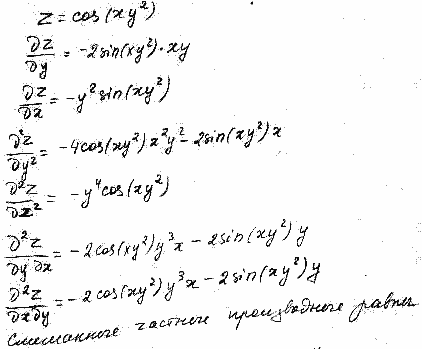 z = cos(xy²)
∂z/∂y = -2sin(xy²)·xy
∂z/∂x = -y² sin(xy²)
∂²z/∂y² = -4cos(xy²)x²y² - 2sin(xy²)x
∂²z/∂x² = -y⁴cos(xy²)
∂²z/∂y∂x = -2cos(xy²)y³x - 2sin(xy²)y
∂²z/∂x∂y = -2cos(xy²)y³x - 2sin(xy²)y
Смешанные частные производные равны